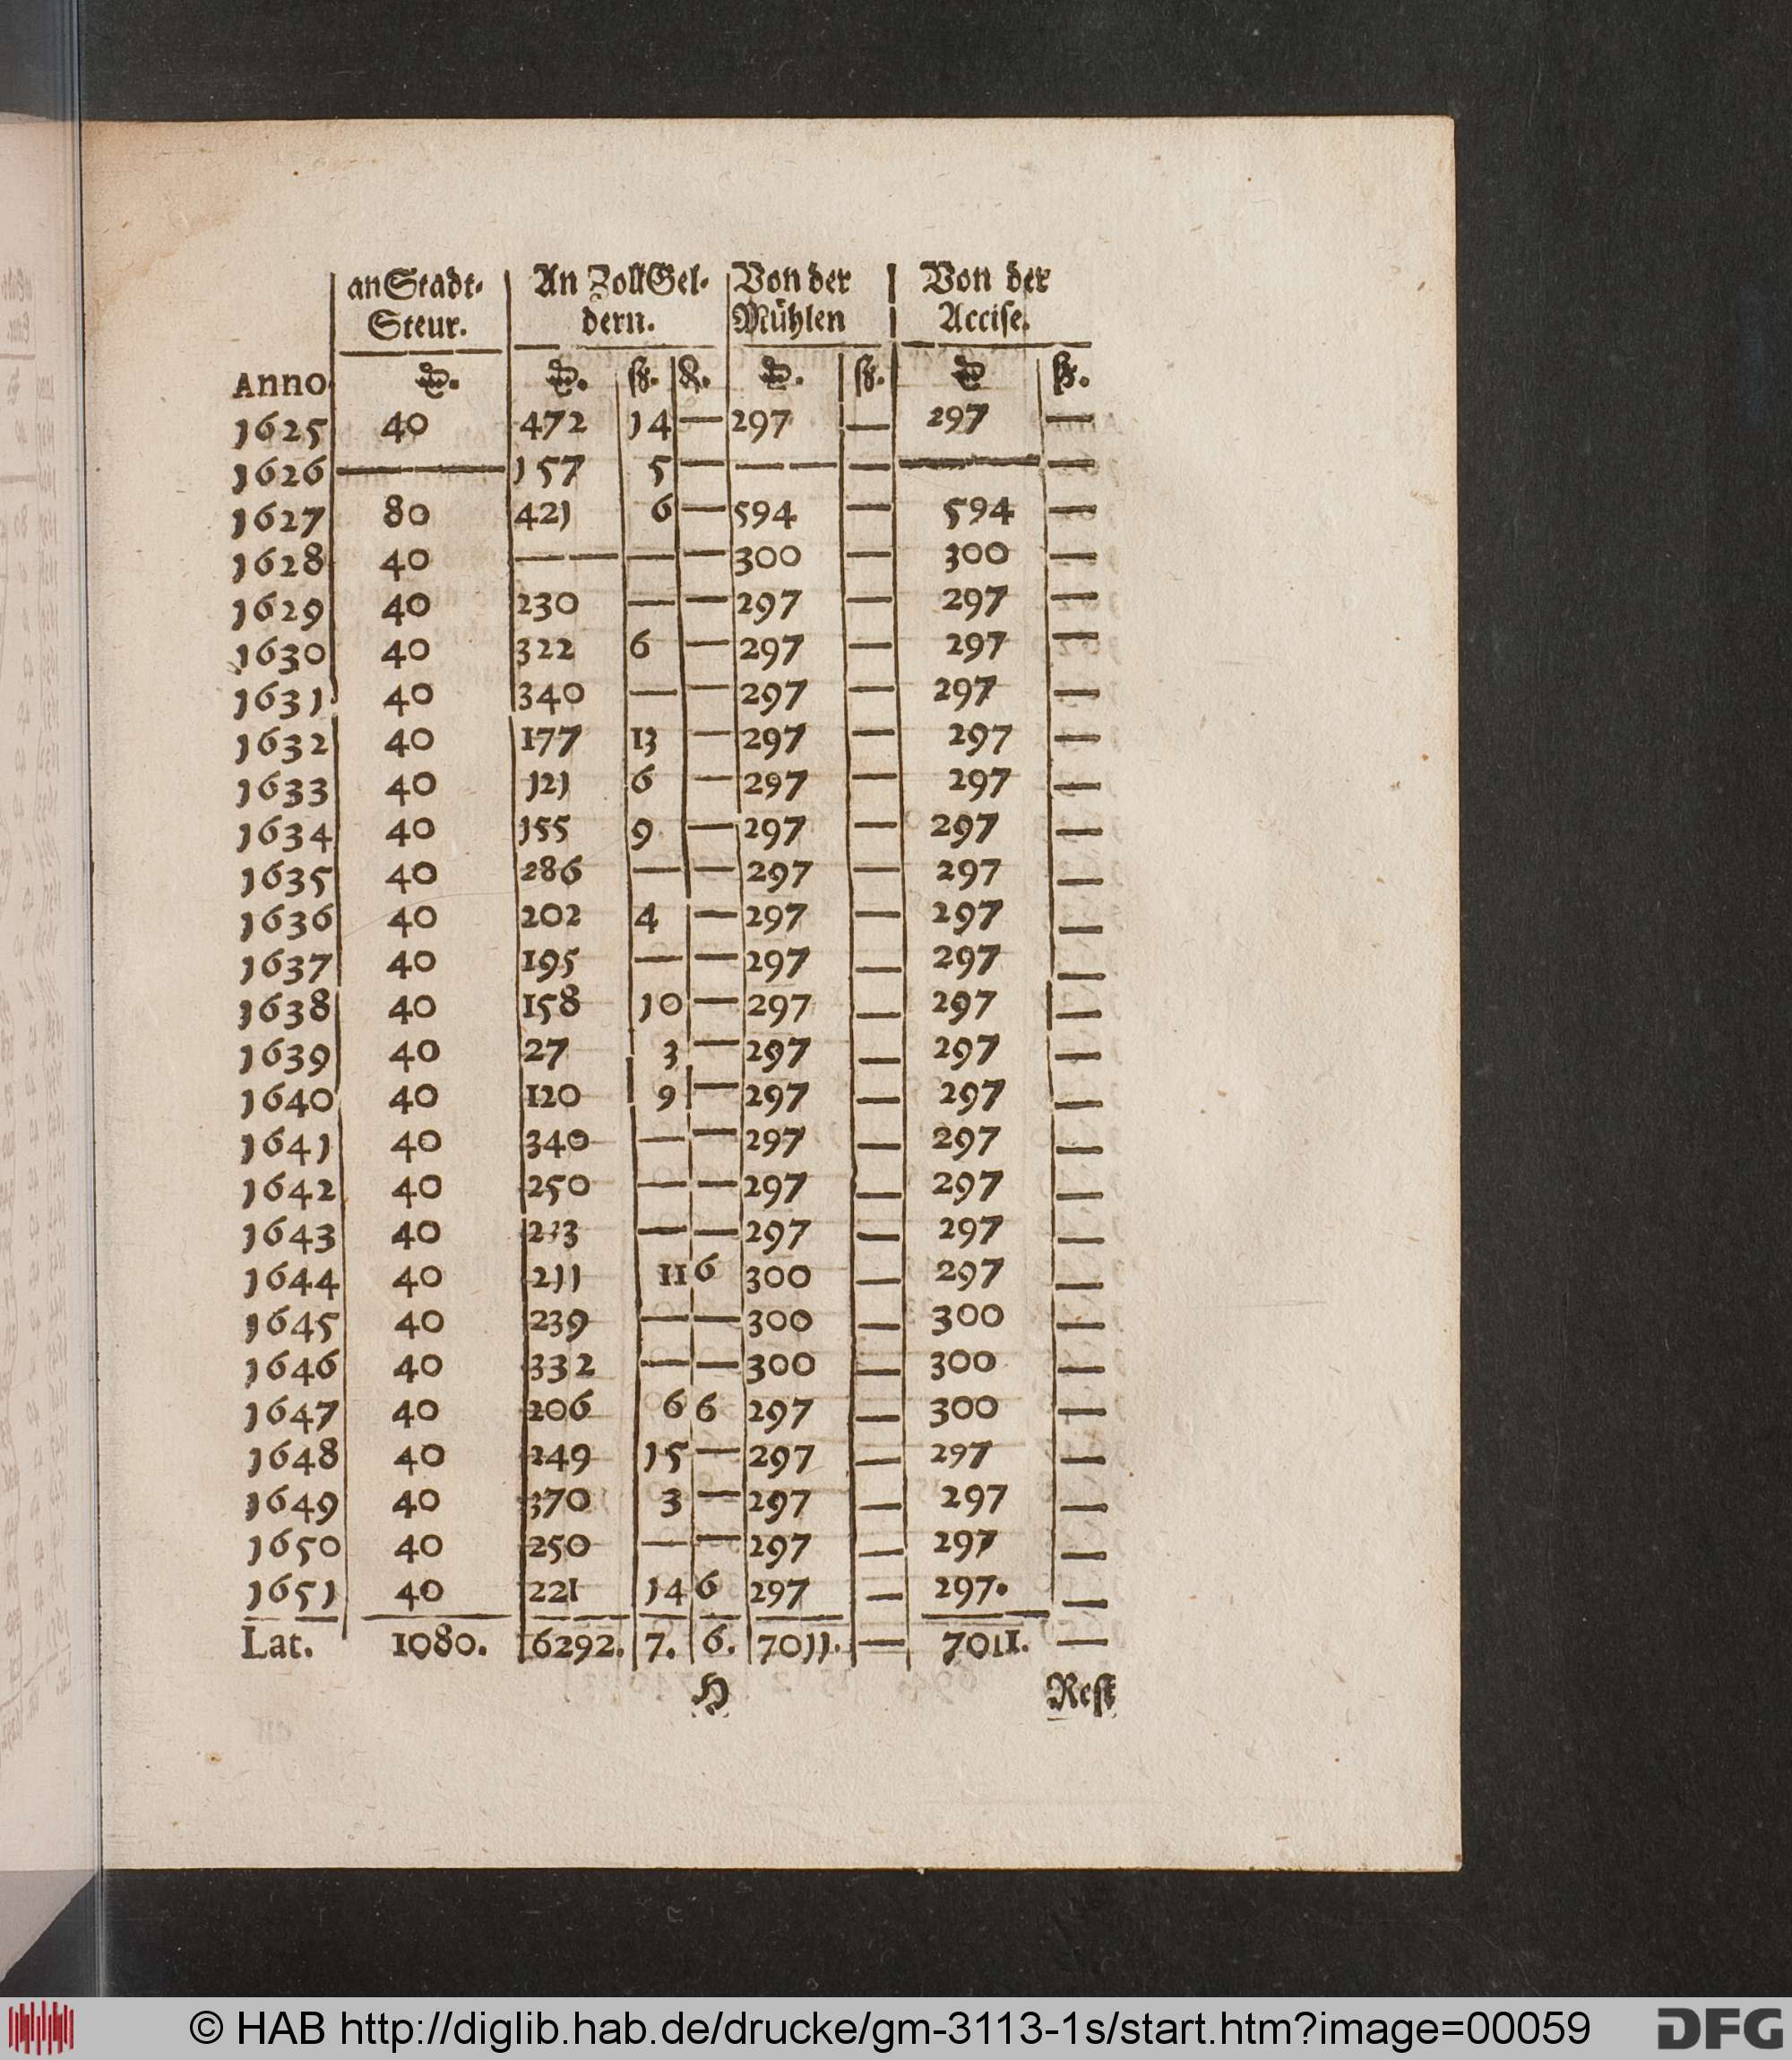 an Stadt- An Zoll Gel- Von der Von der
Steur. dern. Mühlen Accise.
Anno
1625 40 472 14 — 297 — 297 —
1626 — 157 5 — — — — —
1627 80 421 6 — 594 — 594 —
1628 40 — — — 300 — 300 —
1629 40 230 — — 297 — 297 —
1630 40 322 6 — 297 — 297 —
1631 40 340 — — 297 — 297 —
1632 40 177 13 — 297 — 297 —
1633 40 121 6 — 297 — 297 —
1634 40 155 9 — 297 — 297 —
1635 40 286 — — 297 — 297 —
1636 40 202 4 — 297 — 297 —
1637 40 195 — — 297 — 297 —
1638 40 158 10 — 297 — 297 —
1639 40 27 3 — 297 — 297 —
1640 40 120 9 — 297 — 297 —
1641 40 340 — — 297 — 297 —
1642 40 250 — — 297 — 297 —
1643 40 233 — — 297 — 297 —
1644 40 211 11 6 300 — 297 —
1645 40 239 — — 300 — 300 —
1646 40 332 — — 300 — 300 —
1647 40 206 6 6 297 — 300 —
1648 40 249 15 — 297 — 297 —
1649 40 370 3 — 297 — 297 —
1650 40 250 — — 297 — 297 —
1651 40 221 14 6 297 — 297. —
Lat. 1080. 6292. 7. 6. 7011. — 7011. —
H Rest
© HAB http://diglib.hab.de/drucke/gm-3113-1s/start.htm?image=00059 DFG